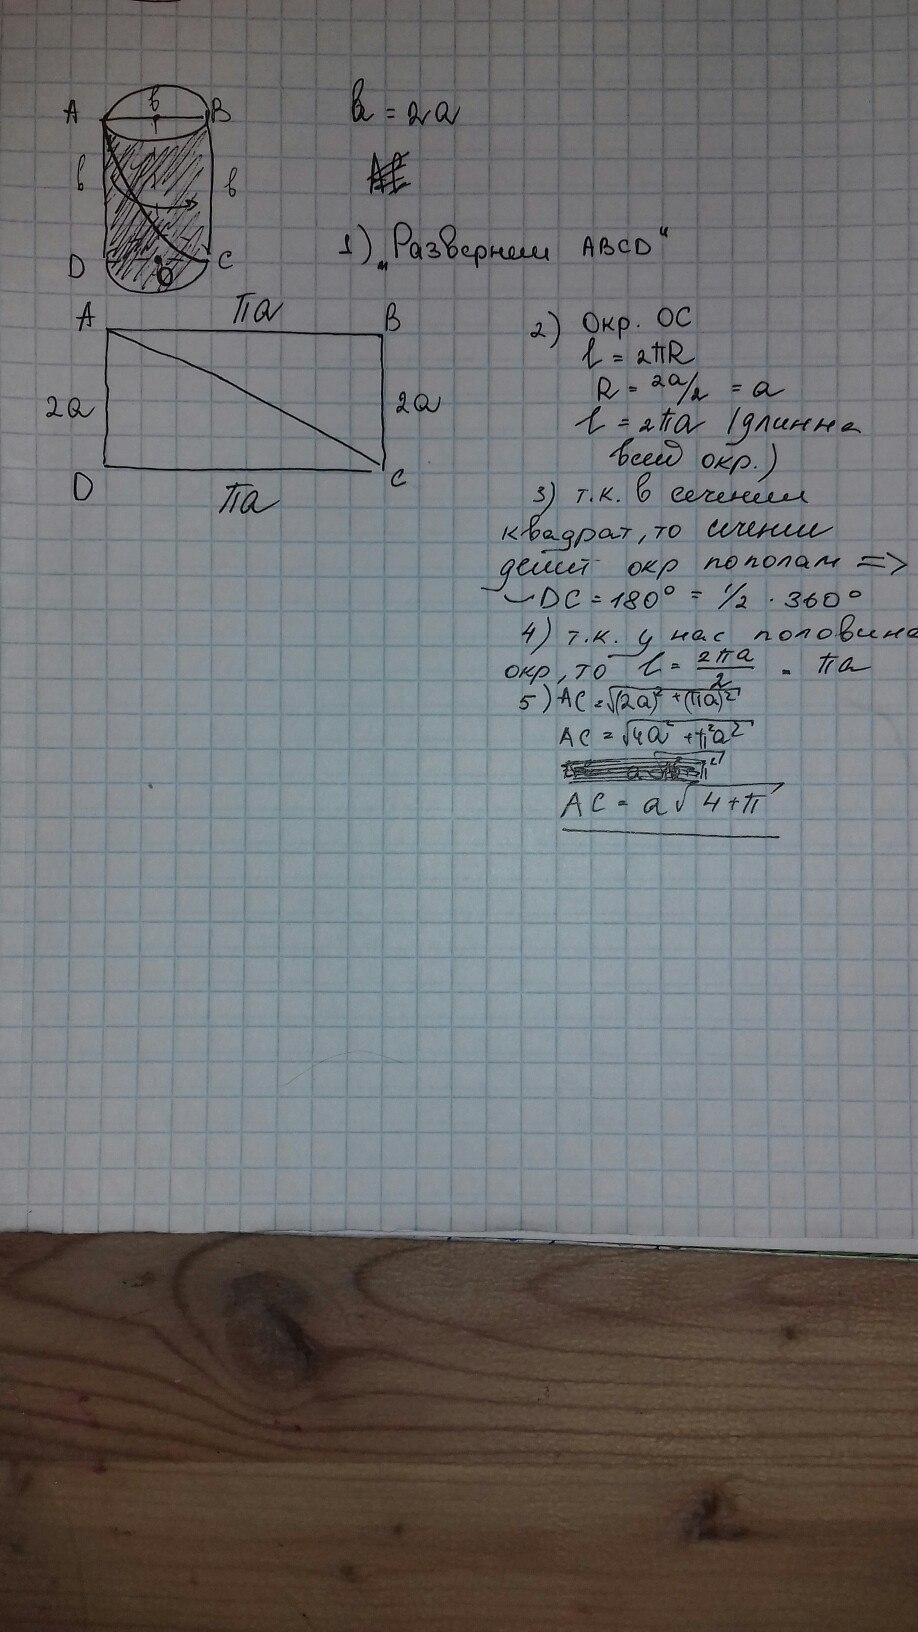 A в B
в в
D O C
в = 2a
1) „Развернем ABCD"
A πa B
2a 2a
D πa C
2) Окр. OC
l = 2πR
R = 2a/2 = a
l = 2πa (длинна
всей окр.)
3) т.к. в сечении
квадрат, то сечении
делит окр пополам =>
◡DC = 180° = 1/2 · 360°
4) т.к. у нас половина
окр, то l = 2πa/2 = πa
5) AC = √(2a)² + (πa)²
AC = √4a² + π²a²
AC = a√4+π